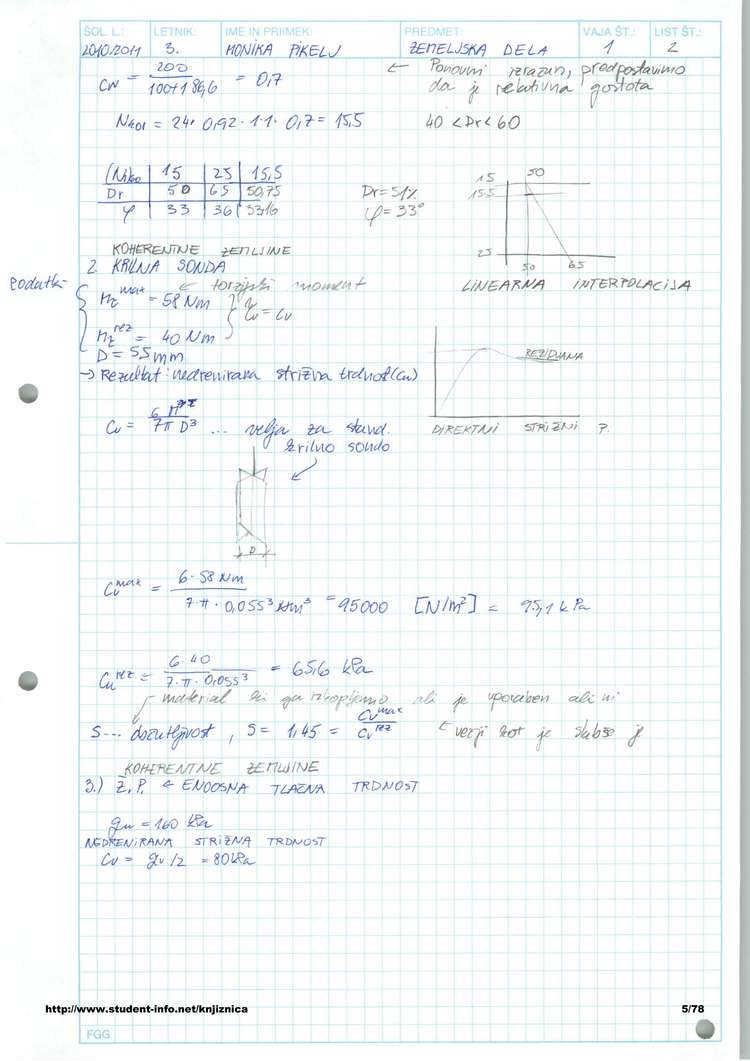 ŠOL. L.: LETNIK: IME IN PRIIMEK: PREDMET: VAJA ŠT.: LIST ŠT.:
2010/2011 3. MONIKA PIKELJ ZEMELJSKA DELA 1 2
CN = 200 / 100+186,6 = 0,7
← Ponovni izračun, predpostavimo
da je relativna gostota
N1(60) = 24 · 0,92 · 1·1 · 0,7 = 15,5
40 < Dr < 60
(N1)60 15 25 15,5
Dr 50 65 50,75
φ 33 36 33,16
Dr = 51%
φ = 33°
15 50
15,5
25
50 65
LINEARNA INTERPOLACIJA
KOHERENTNE ZEMLJINE
2 KRILNA SONDA
Podatki
← torzijski moment
Mt max = 58 Nm
τu = cu
Mt rez = 40 Nm
D = 55 mm
→ Rezultat: nedrenirana strižna trdnost (cu)
REZIDUALNA
DIREKTNI STRIŽNI P.
Cu = 6 M / 7π D³ ... velja za stand.
krilno sondo
D
Cu max = 6 · 58 Nm / 7·π · 0,055³ m³ = 95000 [N/m²] = 95,1 kPa
Cu rez = 6 · 40 / 7 · π · 0,055³ = 65,6 kPa
material ki ga izkopljemo ali je uporaben ali ni
S... občutljivost, S = 1,45 = Cu max / Cu rez
← večji kot je slabše je
KOHERENTNE ZEMLJINE
3.) Ž.P. ← ENOOSNA TLAČNA TRDNOST
qu = 160 kPa
NEDRENIRANA STRIŽNA TRDNOST
Cu = qu/2 = 80kPa
http://www.student-info.net/knjiznica 5/78
FGG